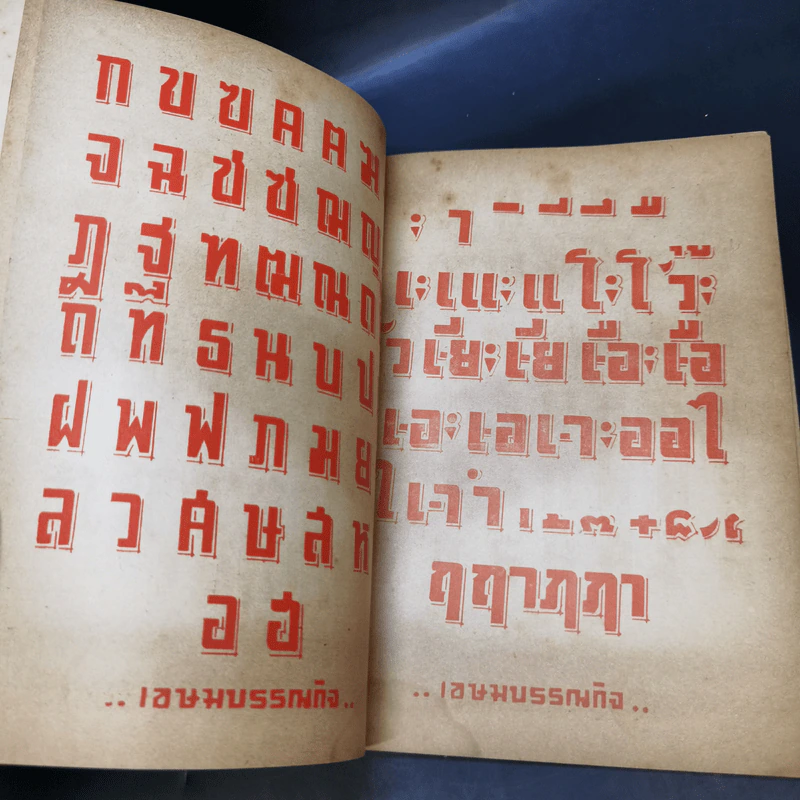 ก ข ฃ ค ฅ ฆ
จ ฉ ช ซ ฌ ญ
ฎ ฐ ฑ ฒ ณ ด
ถ ท ธ น บ ป
ฝ พ ฟ ภ ม ย
ล ว ศ ษ ส ห
อ ฮ
..เขษมบรรณกิจ..
ะ า
เะ แะ แ โะ โ
เียะ เีย เือะ เือ
เอะ เอ เาะ ออ ไ
ใ เา ำ
ฤ ฤา ฦ ฦา
..เขษมบรรณกิจ..